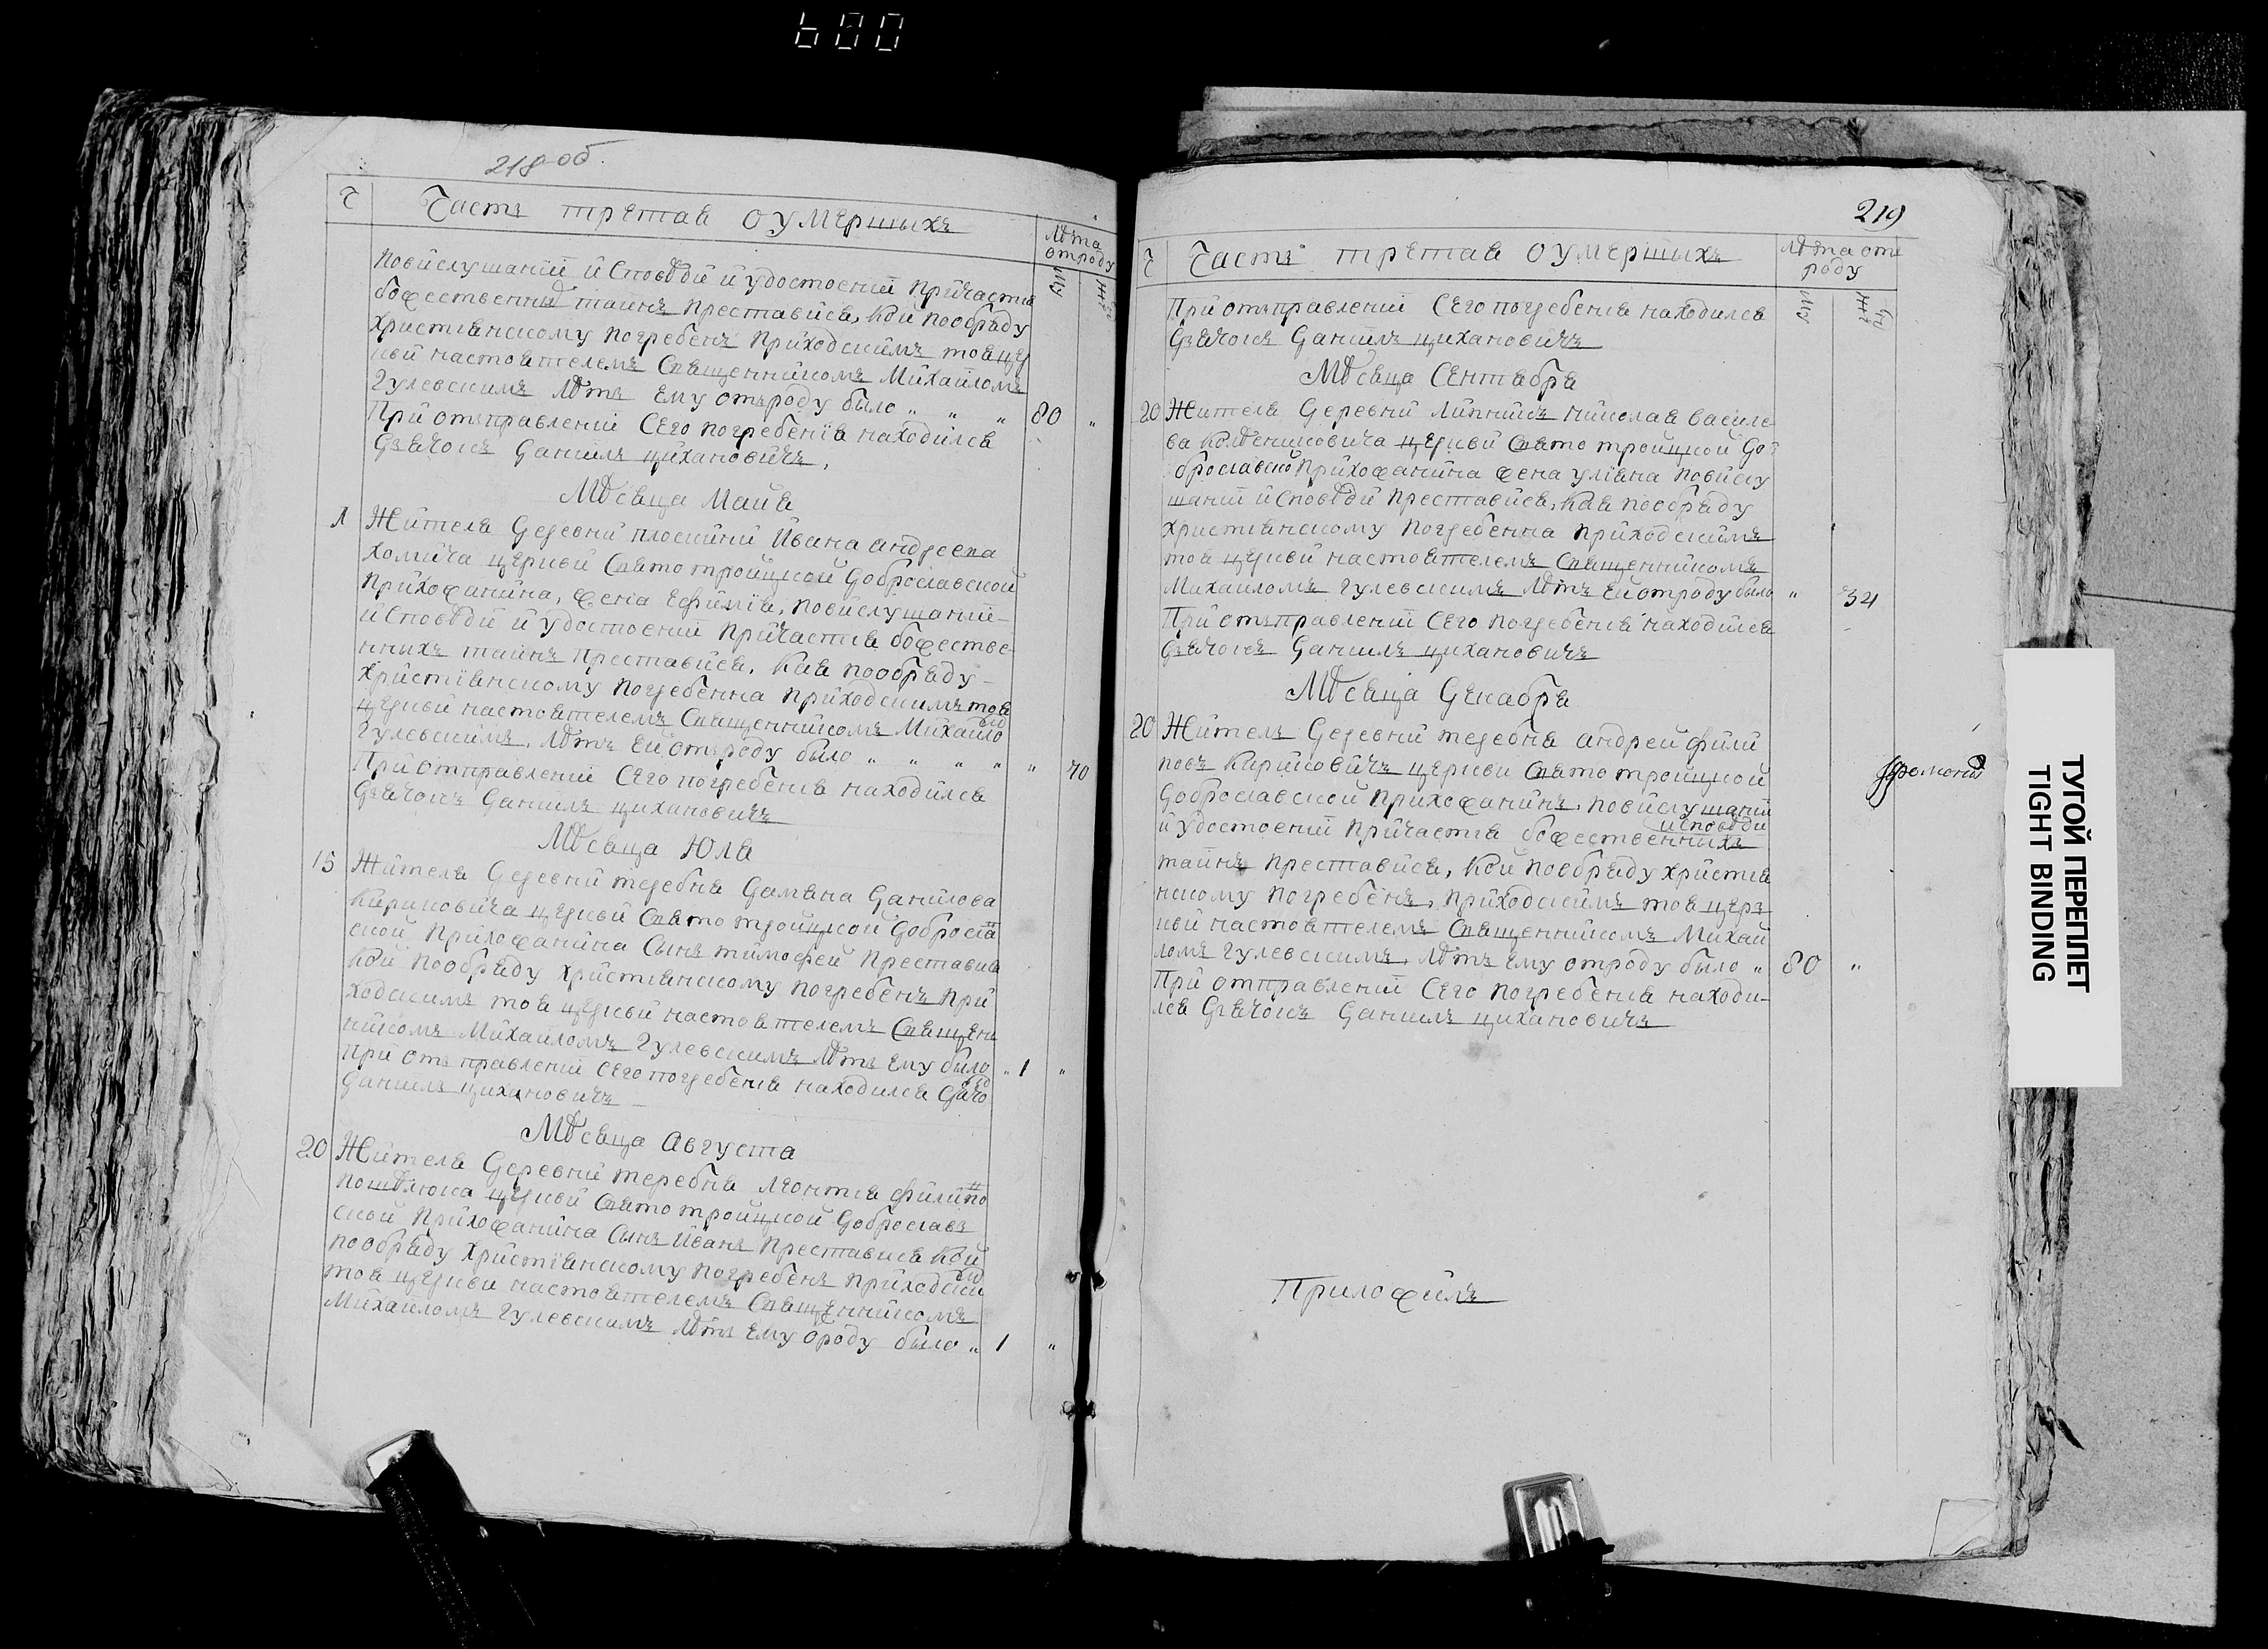 600
218 об.
Ч Часть третая оумершыхъ
Лѣта
отроду
Му
Же
повислушаніи исповѣди и удостоеніи причастія
божественнѣ таинъ преставися, кой пообряду
христіянскому погребенъ приходскимъ тояцер
кви настоятелемъ священникомъ Михайломъ
Гулевскимъ лѣтъ ему отъроду было „ „ „ 80 „
При отъправленіи сего погребенія находился
Дзячокъ Даніилъ Цихановичъ,
Мѣсяца Маия
1 Жителя Деревни плоскини Ивана андреева
хомича церкви Святотройцкой Доброславской
прихожанина, жена Ефимія, повислушаніи
исповѣди и удостоеніи причастія божестве-
нныхъ таинъ преставися, кая пообряду
христіянскому погребенна приходскимъ тоя
церкви настоятелемъ священникомъ Михайло
Гулевскимъ, лѣтъ ей отъроду было „ „ „ „ „ 70
При отправленіи сего погребенія находился
Дзячокъ Даніилъ Цихановичъ
Мѣсяца Юля
15 Жителя Деревни теребня Дамяна Данилова
Кириковича церкви Святотройцкой Доброслав
ской прихожанина сынъ тимофей преставися
кой пообряду христіянскому погребенъ при
ходскимъ тоя церкви настоятелемъ священ
никомъ Михаиломъ Гулевскимъ лѣтъ ему было „ 1 „
При отъправленіи сего погребенія находился Дячо
Даніилъ Цихановичъ
Мѣсяца Августа
20 Жителя Деревни теребня леонтія филипо
церкви Святотройцкой Доброславъ
ской прихожанина сынъ Иванъ преставися кой
пообряду христіянскому погребенъ приходски
тоя церкви настоятелемъ священникомъ
Михаиломъ Гулевскимъ лѣтъ ему ороду было „ 1 „
219
Ч Часть третая оумершыхъ
Лѣта отъ
роду
Му
Же
При отъправленіи сего погребенія находился
Дзячокъ Даніилъ Цихановичъ
Мѣсяца Сентабря
20 Жителя Деревни Липникъ николая василе
ва церкви Святотройцкой До
брославской прихожанина жена уліяна повислу
шаніи исповѣди преставися, кая пообряду
христіянскому погребенна приходскимъ
тоя церкви настоятелемъ священникомъ
Михаиломъ Гулевскимъ лѣтъ ей отроду было „ 34
При отъправленіи сего погребенія находился
Дзячокъ Даніилъ Цихановичъ
Мѣсяца Декабря
20 Житель Деревни теребня андрей фили
повъ Кириковичъ церкви Святотройцкой
Доброславской прихожанинъ, повислушаніи
исповѣди
и удостоеніи причастія божественнихъ
таинъ преставися, кой пообряду христія
нскому погребенъ, приходскимъ тоя церъ
кви настоятелемъ священникомъ Михай
ломъ Гулевскимъ, лѣтъ ему отроду было „ 80 „
При отправленіи сего погребенія находи-
лся Дзячокъ Даніилъ Цихановичъ
Приложилъ
ТУГОЙ ПЕРЕПЛЕТ
TIGHT BINDING